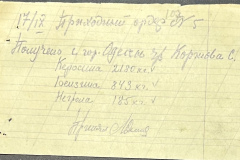 17/IX Приходный орд. № 5
Получено с гор. Одессы Коршова С.
Керосина 2180 кг. ✓
Бензина 843 кг. ✓
Нефти 185 кг. ✓
Принял